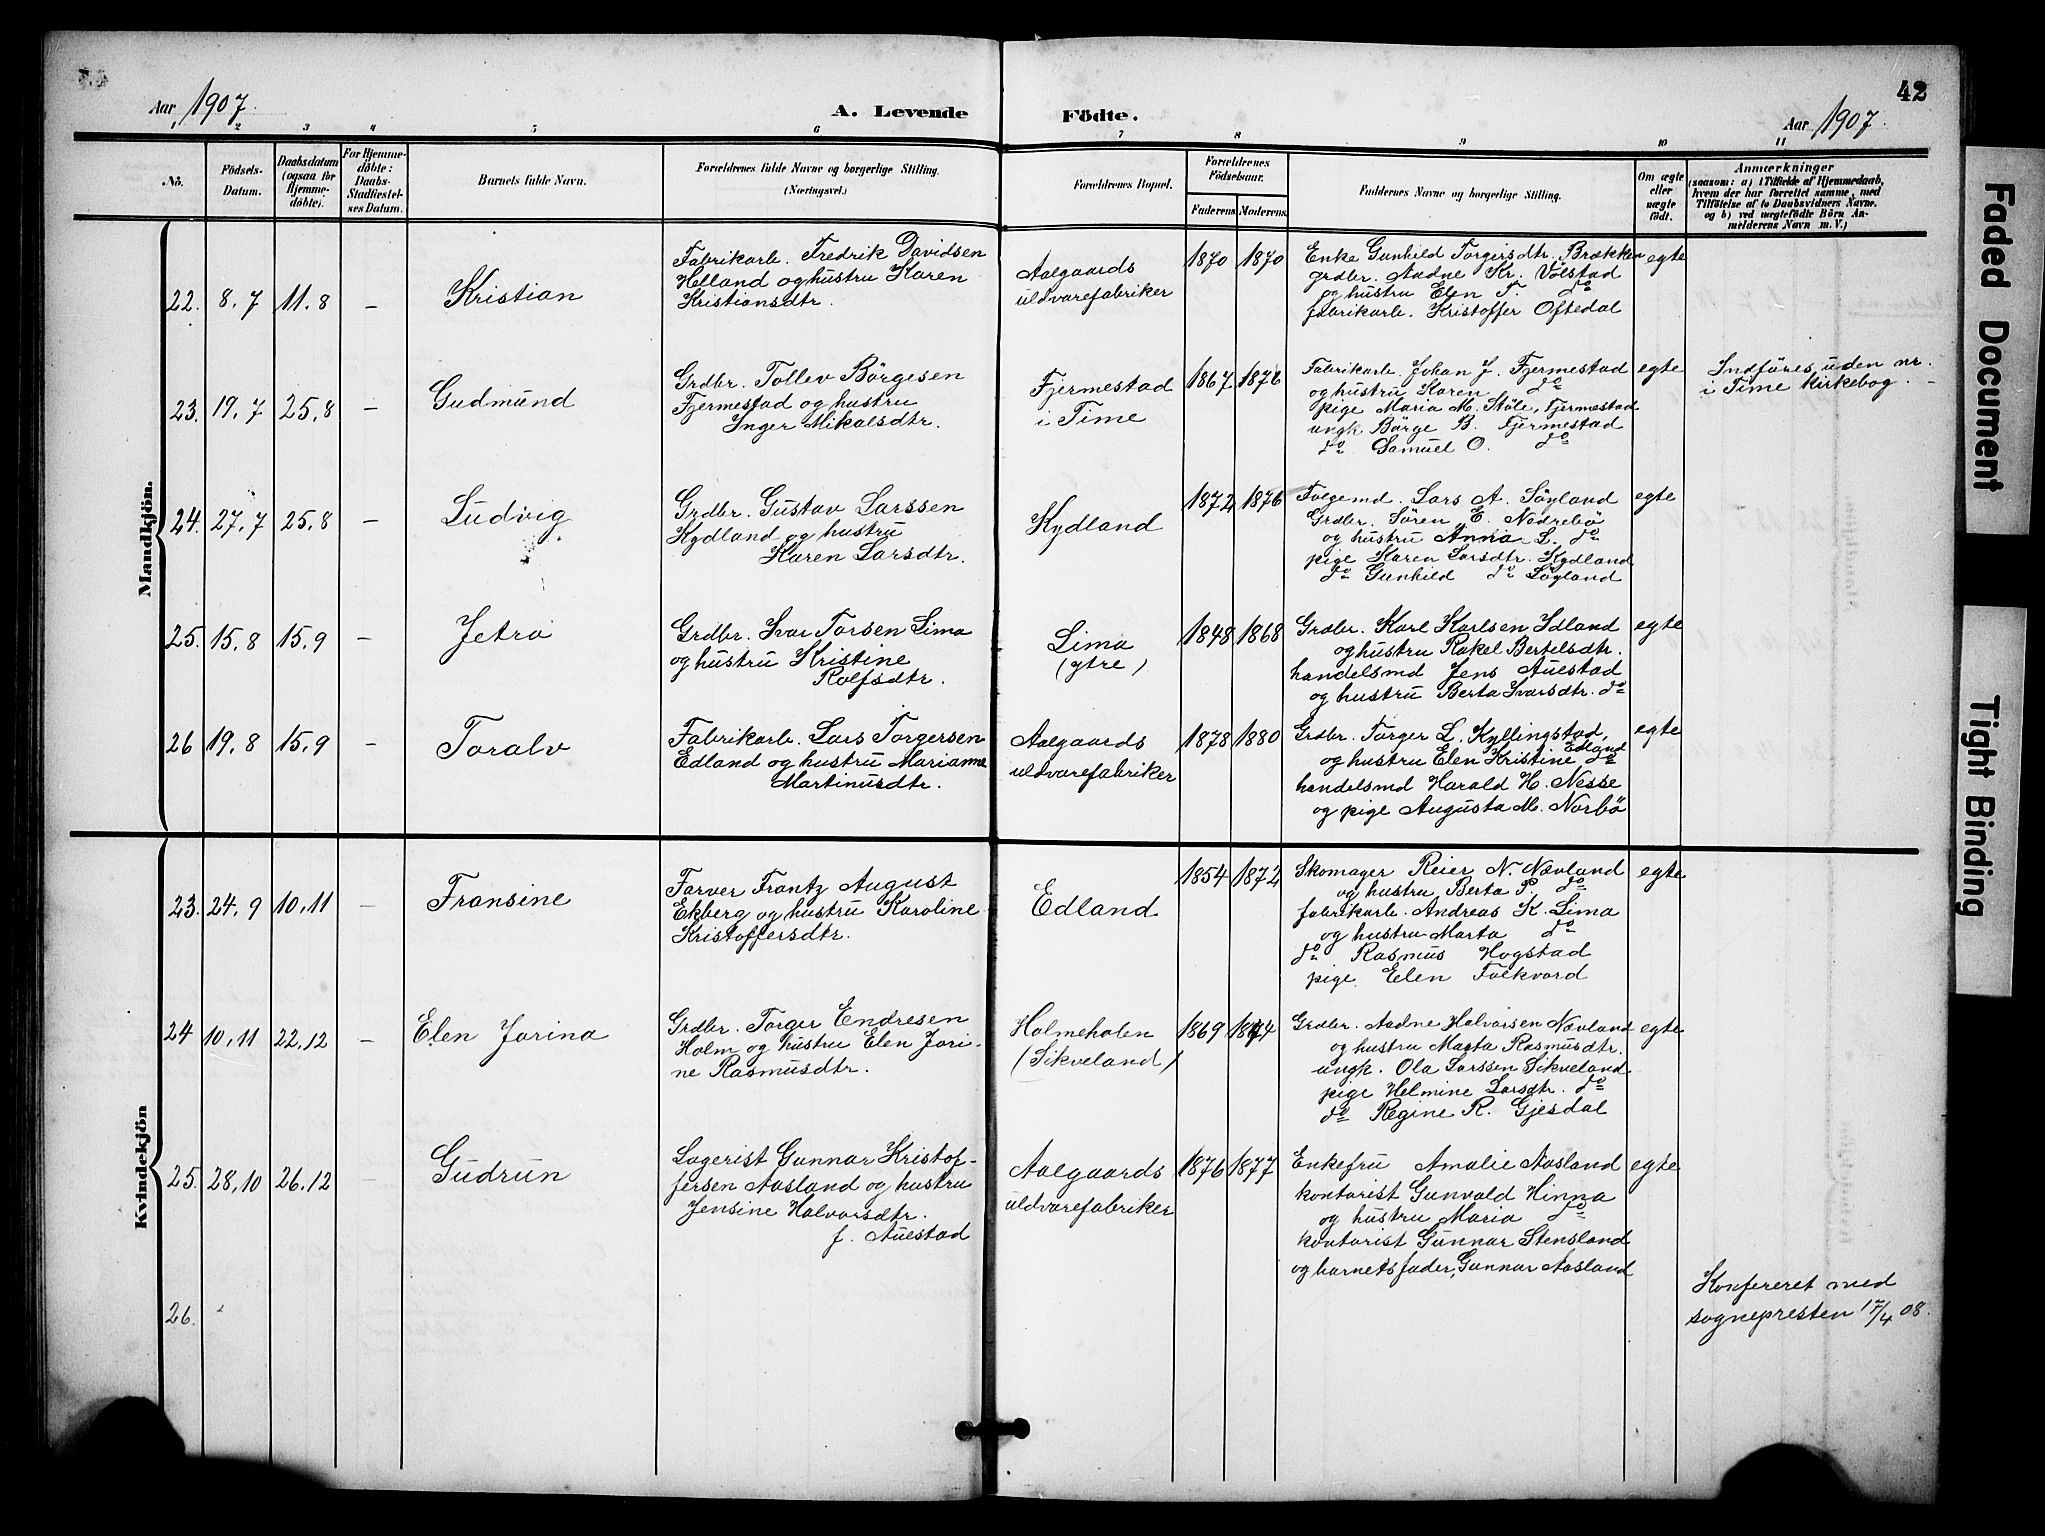 42
Aar 1907.
A. Levende Födte.
Aar 1907.
1 2 3 4 5 6 7 8 9 10 11
No.
Födsels-
Datum.
Daabsdatum
(ogsaa for
Hjemme-
döbte).
For Hjemme-
döbte:
Daabs-
Stadfæstel-
ses Datum.
Barnets fulde Navn.
Forældrenes fulde Navne og borgerlige Stilling.
(Næringsvei.)
Forældrenes Bopæl.
Forældrenes
Födselsaar.
Faderens.
Moderens.
Faddernes Navne og borgerlige Stilling.
Om ægte
eller
uægte
födt.
Anmærkninger
(saasom: a) i Tilfælde af Hjemmedaab,
hvem der har forrettet samme, med
Tilföielse af to Daabsvidners Navne.
og b) ved uægtefödte Börn An-
melderens Navn m. V.)
Mandkjön.
22. 8.7 11.8 — Kristian
Fabrikarb. Fredrik Davidsen
Helland og hustru Karen
Kristiansdtr.
Aalgaards
uldvarefabriker
1870 1870
Enke Gunhild Torgersdtr. Brækken
grdbr. Aadne Kr. Völstad
og hustru Elen T. do
fabrikarb. Kristoffer Oftedal
egte
23. 19.7 25.8 — Gudmund
Grdbr. Tollev Börgesen
Fjermestad og hustru
Inger Mikalsdtr.
Fjermestad
i Time
1867 1876
Fabrikarb. Johan J. Fjermestad
og hustru Karen do
pige Maria M. Stöle, Fjermestad
ungk Börge B. Fjermestad
do Samuel O. do
egte
Indföres uden nr.
i Time kirkebog. —
24. 27.7 25.8 — Ludvig
Grdbr. Gustav Larssen
Kydland og hustru
Karen Larsdtr.
Kydland
1872 1876
Folgemd. Lars A. Söyland
Grdbr. Sören E. Nedrebö
og hustru Anna L. do
pige Karen Larsdtr. Kydland
do Gunhild do Söyland
egte
25. 15.8 15.9 — Jetro
Grdbr. Ivar Torsen Lima
og hustru Kristine
Rolfsdtr.
Lima
(ytre)
1848 1868
Grdbr. Karl Karlsen Idland
og hustru Rakel Bertelsdtr.
handelsmd Jens Auestad
og hustru Berta Ivarsdtr. do
egte
26 19.8 15.9 — Toralv
Fabrikarb. Lars Torgersen
Edland og hustru Marianne
Martinusdtr.
Aalgaards
uldvarefabriker
1878 1880
Grdbr. Torger L. Kyllingstad,
Edland
og hustru Elen Kristine do
handelsmd Harald H. Nesse
og pige Augusta M. Norbö
egte
Kvindekjön
23. 24.9 10.11 — Fransine
Farver Frantz August
Ekberg og hustru Karoline
Kristoffersdtr.
Edland
1854 1872
Skomager Reier N. Nævland
og hustru Berta P. do
fabrikarb. Andreas K. Lima
og hustru Marta do
do Rasmus Hogstad
pige Elen Folkvord
egte
24 10.11 22.12 — Elen Jorina
Grdbr. Torger Endresen
Holm og hustru Elen Jori-
ne Rasmusdtr.
Holmeholen
(Sikveland)
1869 1874
Grdbr. Aadne Halvorsen Nævland
og hustru Marta Rasmusdtr.
ungk. Ola Larssen Sikveland
pige Helmine Larsdtr. do
do Regine R. Gjesdal
egte
25. 28.10 26.12 — Gudrun
Lagerist Gunnar Kristof-
fersen Aasland og hustru
Jensine Halvorsdtr.
f. Auestad
Aalgaards
uldvarefabriker
1876 1877
Enkefru Amalie Aasland
kontorist Gunvald Hinna
og hustru Maria do
kontorist Gunnar Stensland
og barnets fader, Gunnar Aasland
egte
26.
Konfereret med
sognepresten 17/4 08.
Faded Document
Tight Binding